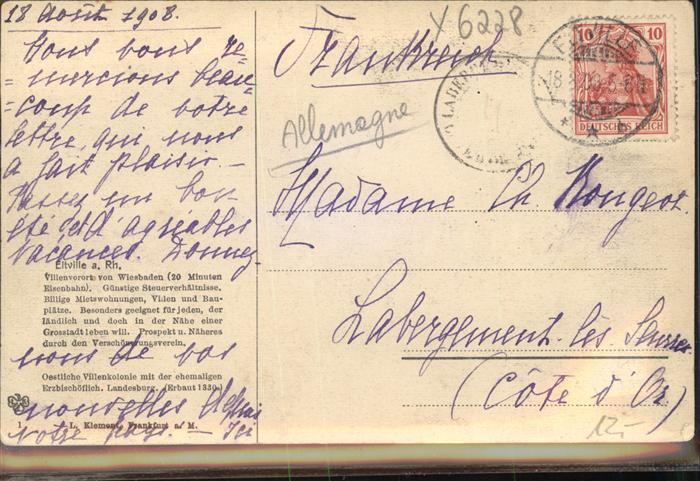 18 Août 1908.
Nous vous re-
=mercions beau-
=coup de votre
lettre qui nous
a fait plaisir. —
Passez un bon
été et d'agréables
vacances. Donnez-
Eltville a. Rh.
Villenvorort von Wiesbaden (20 Minuten
Eisenbahn). Günstige Steuerverhältnisse.
Billige Mietswohnungen, Villen und Bau-
plätze. Besonders geeignet für jeden, der
ländlich und doch in der Nähe einer
Grosstadt leben will. Prospekt u. Näheres
durch den Verschönerungsverein.
nous de vos
Oestliche Villenkolonie mit der ehemaligen
Erzbischöflich. Landesburg. (Erbaut 1330.)
nouvelles
votre pays. — Ici
1 L. Klement, Frankfurt a. M.
Y 6228
Frankreich
Allemagne
10 10
DEUTSCHES REICH
ELTVILLE
Madame Ch. Rongeot
Labergement-lès-Seurre
(Côte d'Or)
12.-